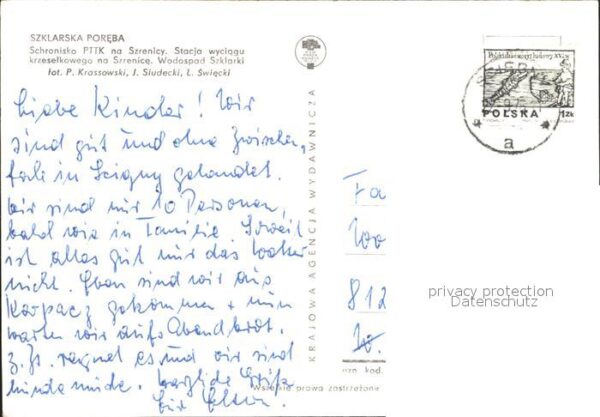 SZKLARSKA PORĘBA
Schronisko PTTK na Szrenicy. Stacja wyciągu
krzesełkowego na Szrenicę. Wodospad Szklarki
fot. P. Krassowski, J. Siudecki, L. Święcki
Liebe Kinder! Wir
sind gut und ohne Zwischen-
fall in Sciegny gelandet.
Wir sind nur 10 Personen,
bald wie in Familie. Soweit
ist alles gut nur das Wetter
nicht. Eben sind wir aus
Karpacz gekommen + nun
warten wir aufs Abendbrot.
z. Zt. regnet es und wir sind
hundemüde. Herzliche Grüße
Eure Eltern
KRAJOWA AGENCJA WYDAWNICZA
Wszelkie prawa zastrzeżone
POLSKA 1zł
a
Fa
812
nzn. kod.
privacy protection
Datenschutz